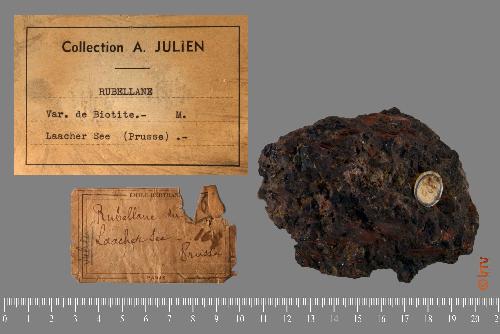 Collection A. JULIEN
RUBELLANE
Var. de Biotite.- M.
Laacher See (Prusse) .-
EMILE BERTRAND
Rubellane du
Laacher See
Prusse
PARIS
© LTV
0 1 2 3 4 5 6 7 8 9 10 11 12 13 14 15 16 17 18 19 20 2